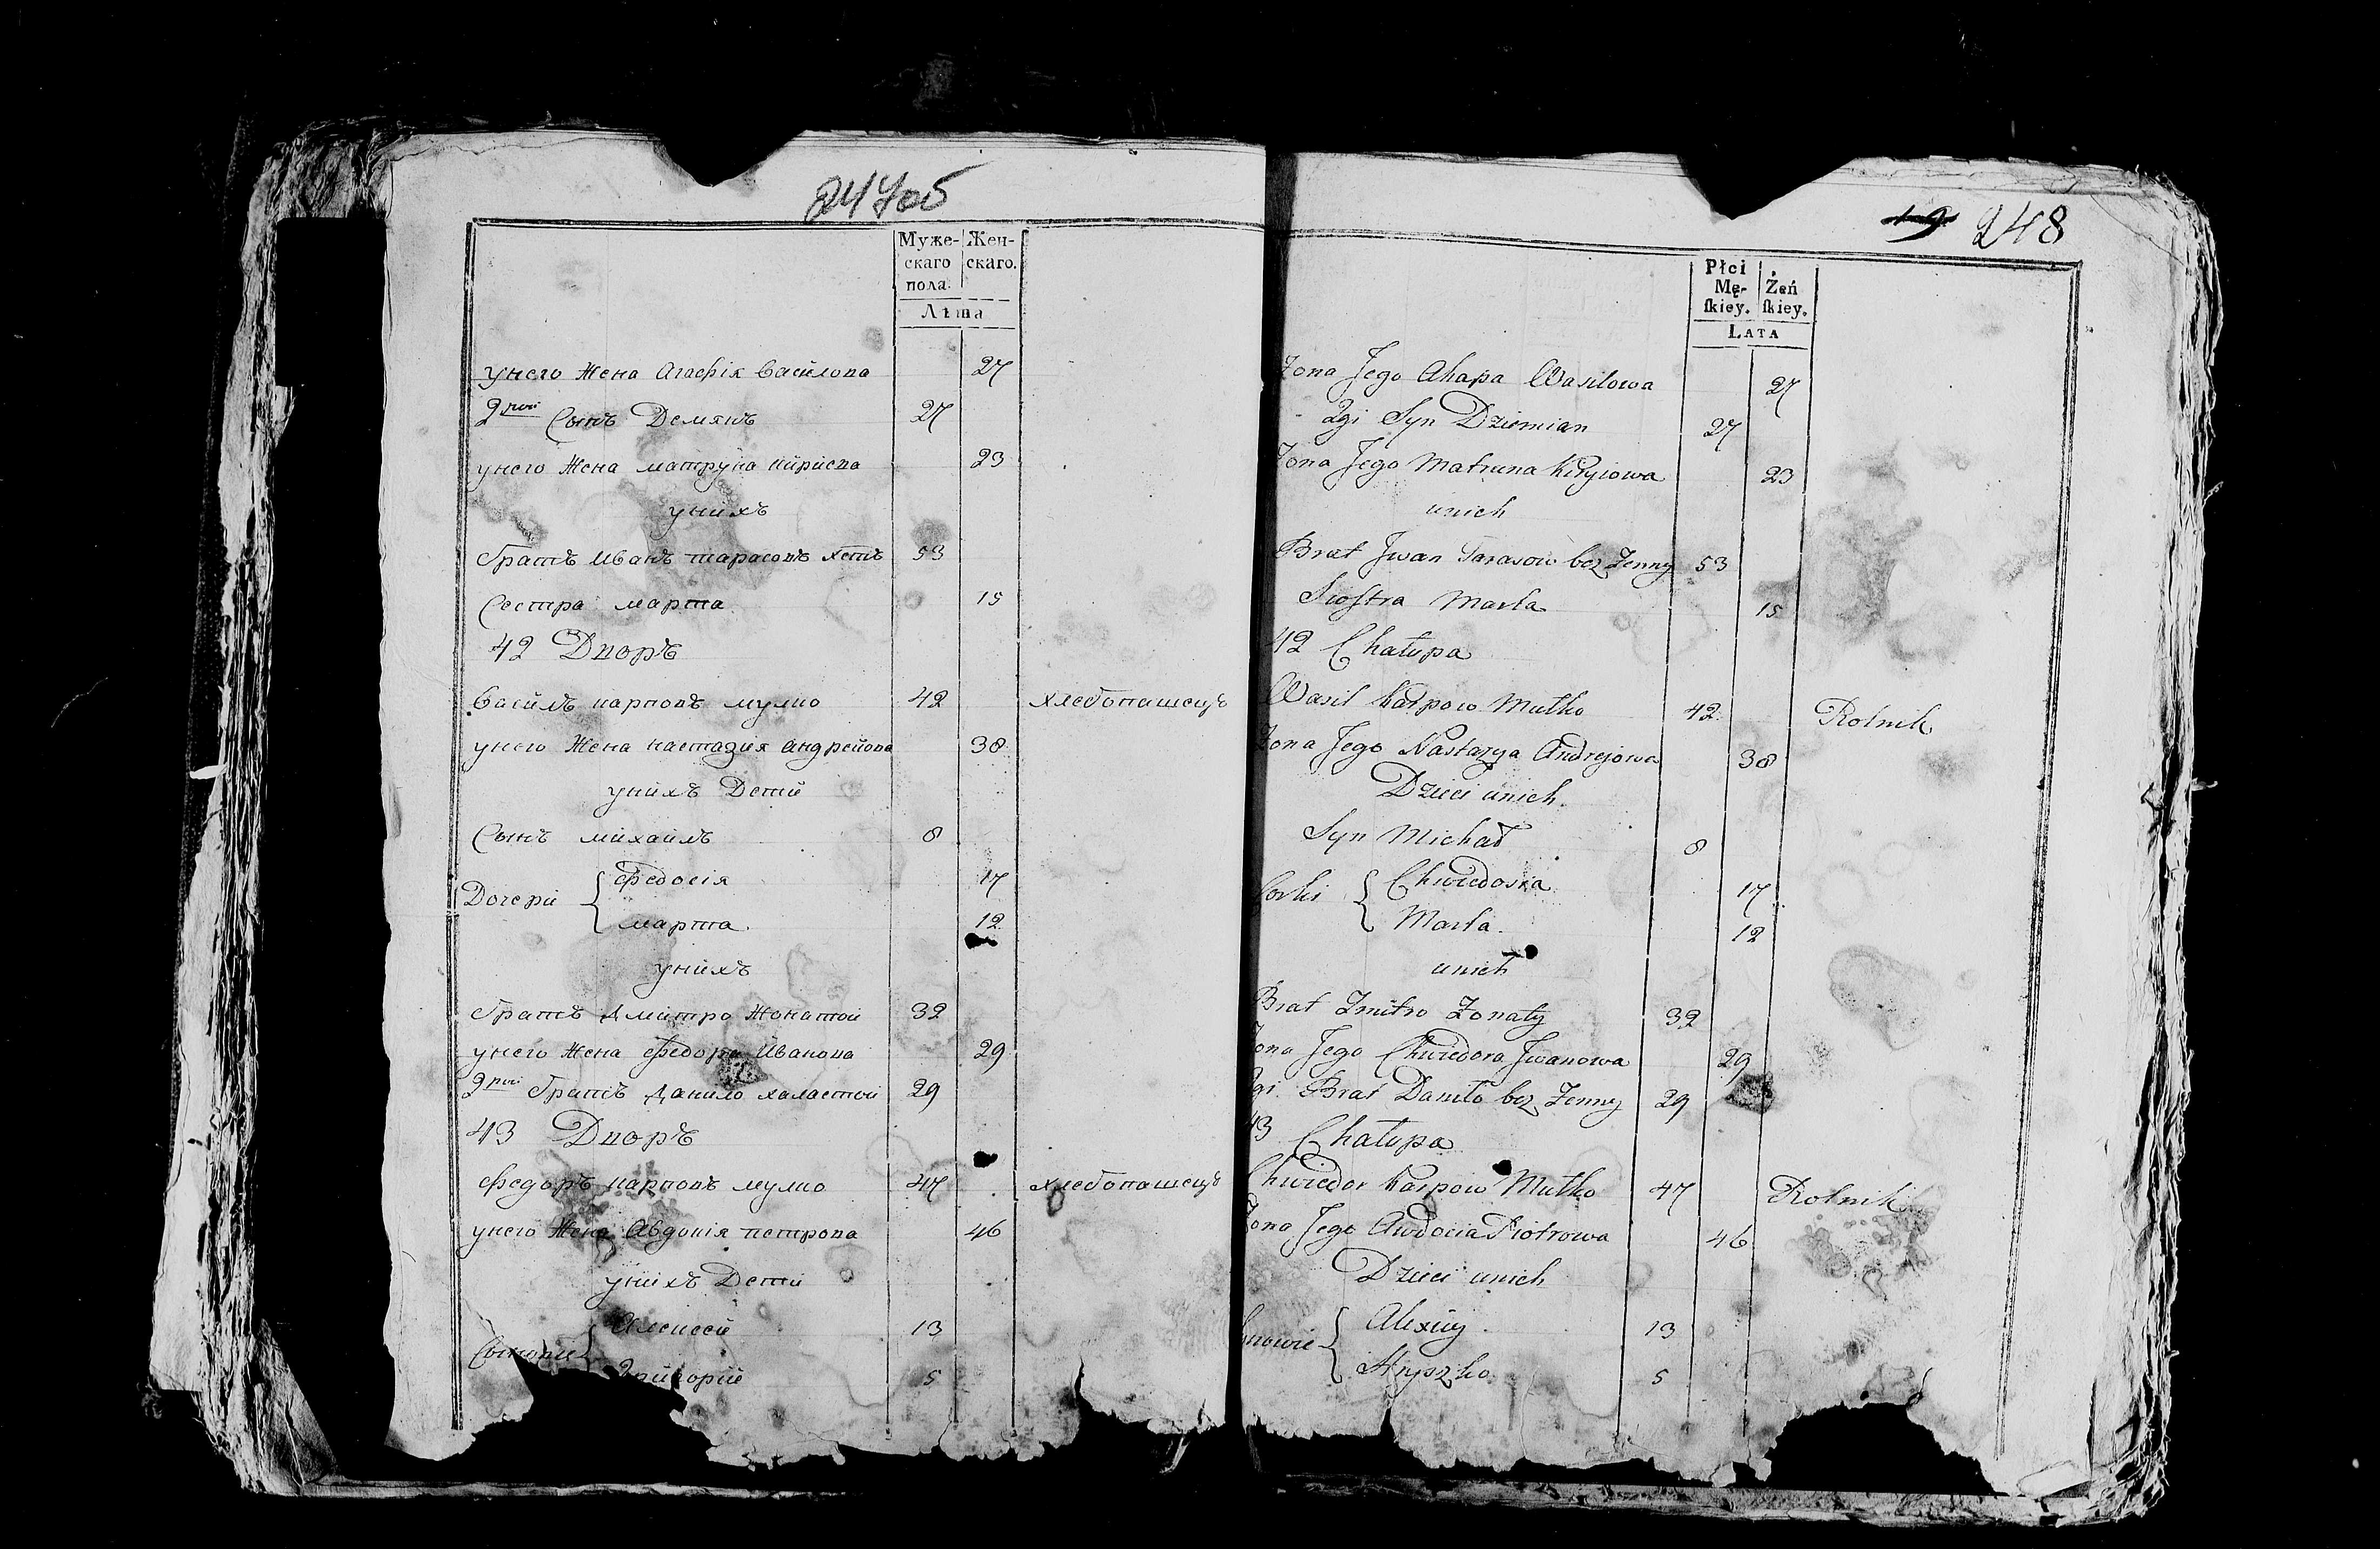 247об
Муже-
скаго
пола.
Жен-
скаго.
Лѣта
унего Жена Агафія василова 27
2гой Сынъ Демянъ 27
унего Жена матруна кириева 23
унихъ
братъ Иванъ тарасовъ хетъ 53
Сестра марта 15
42 Дворъ
василь карповъ мулко 42 хлебопашецъ
унего Жена настазия андрейова 38
унихъ Дети
Сынъ михаилъ 8
Дочери { федосія 17
марта. 12
унихъ
братъ дмитро Жонатой 32
унего Жена федора Иванова 29
2гой братъ данило халастой 29
43 Дворъ
федоръ карповъ мулко 47 хлебопашецъ
унего Жена Авдокія петрова 46
унихъ Дети
Сынове { Алексей 13
Григорий 5
19 248
Płci
Mę-
ſkiey.
Żeń
ſkiey.
LATA
Zona Jego Ahapa Wasilowa 27
2gi Syn Dziemian 27
Zona Jego Matruna Kiryiowa 23
unich
Brat Jwan Tarasow bez Zenny 53
Siostra Marta 15
42 Chałupa
Wasil Karpow Mulko 42 Rolnik
Zona Jego Nastazya Andrejowa 38
Dzieci unich.
Syn Michał 8
Corki { Chwiedosia 17
Marta. 12
unich
Brat Zmitro Zonaty 32
Zona Jego Chwiedora Jwanowa 29
2gi Brat Daniło bez Zenny 29
43 Chałupa
Chwiedor Karpow Mulko 47 Rolnik
Zona Jego Awdocia Piotrowa 46
Dzieci unich
Synowie { Alexiiy 13
Hryszko 5